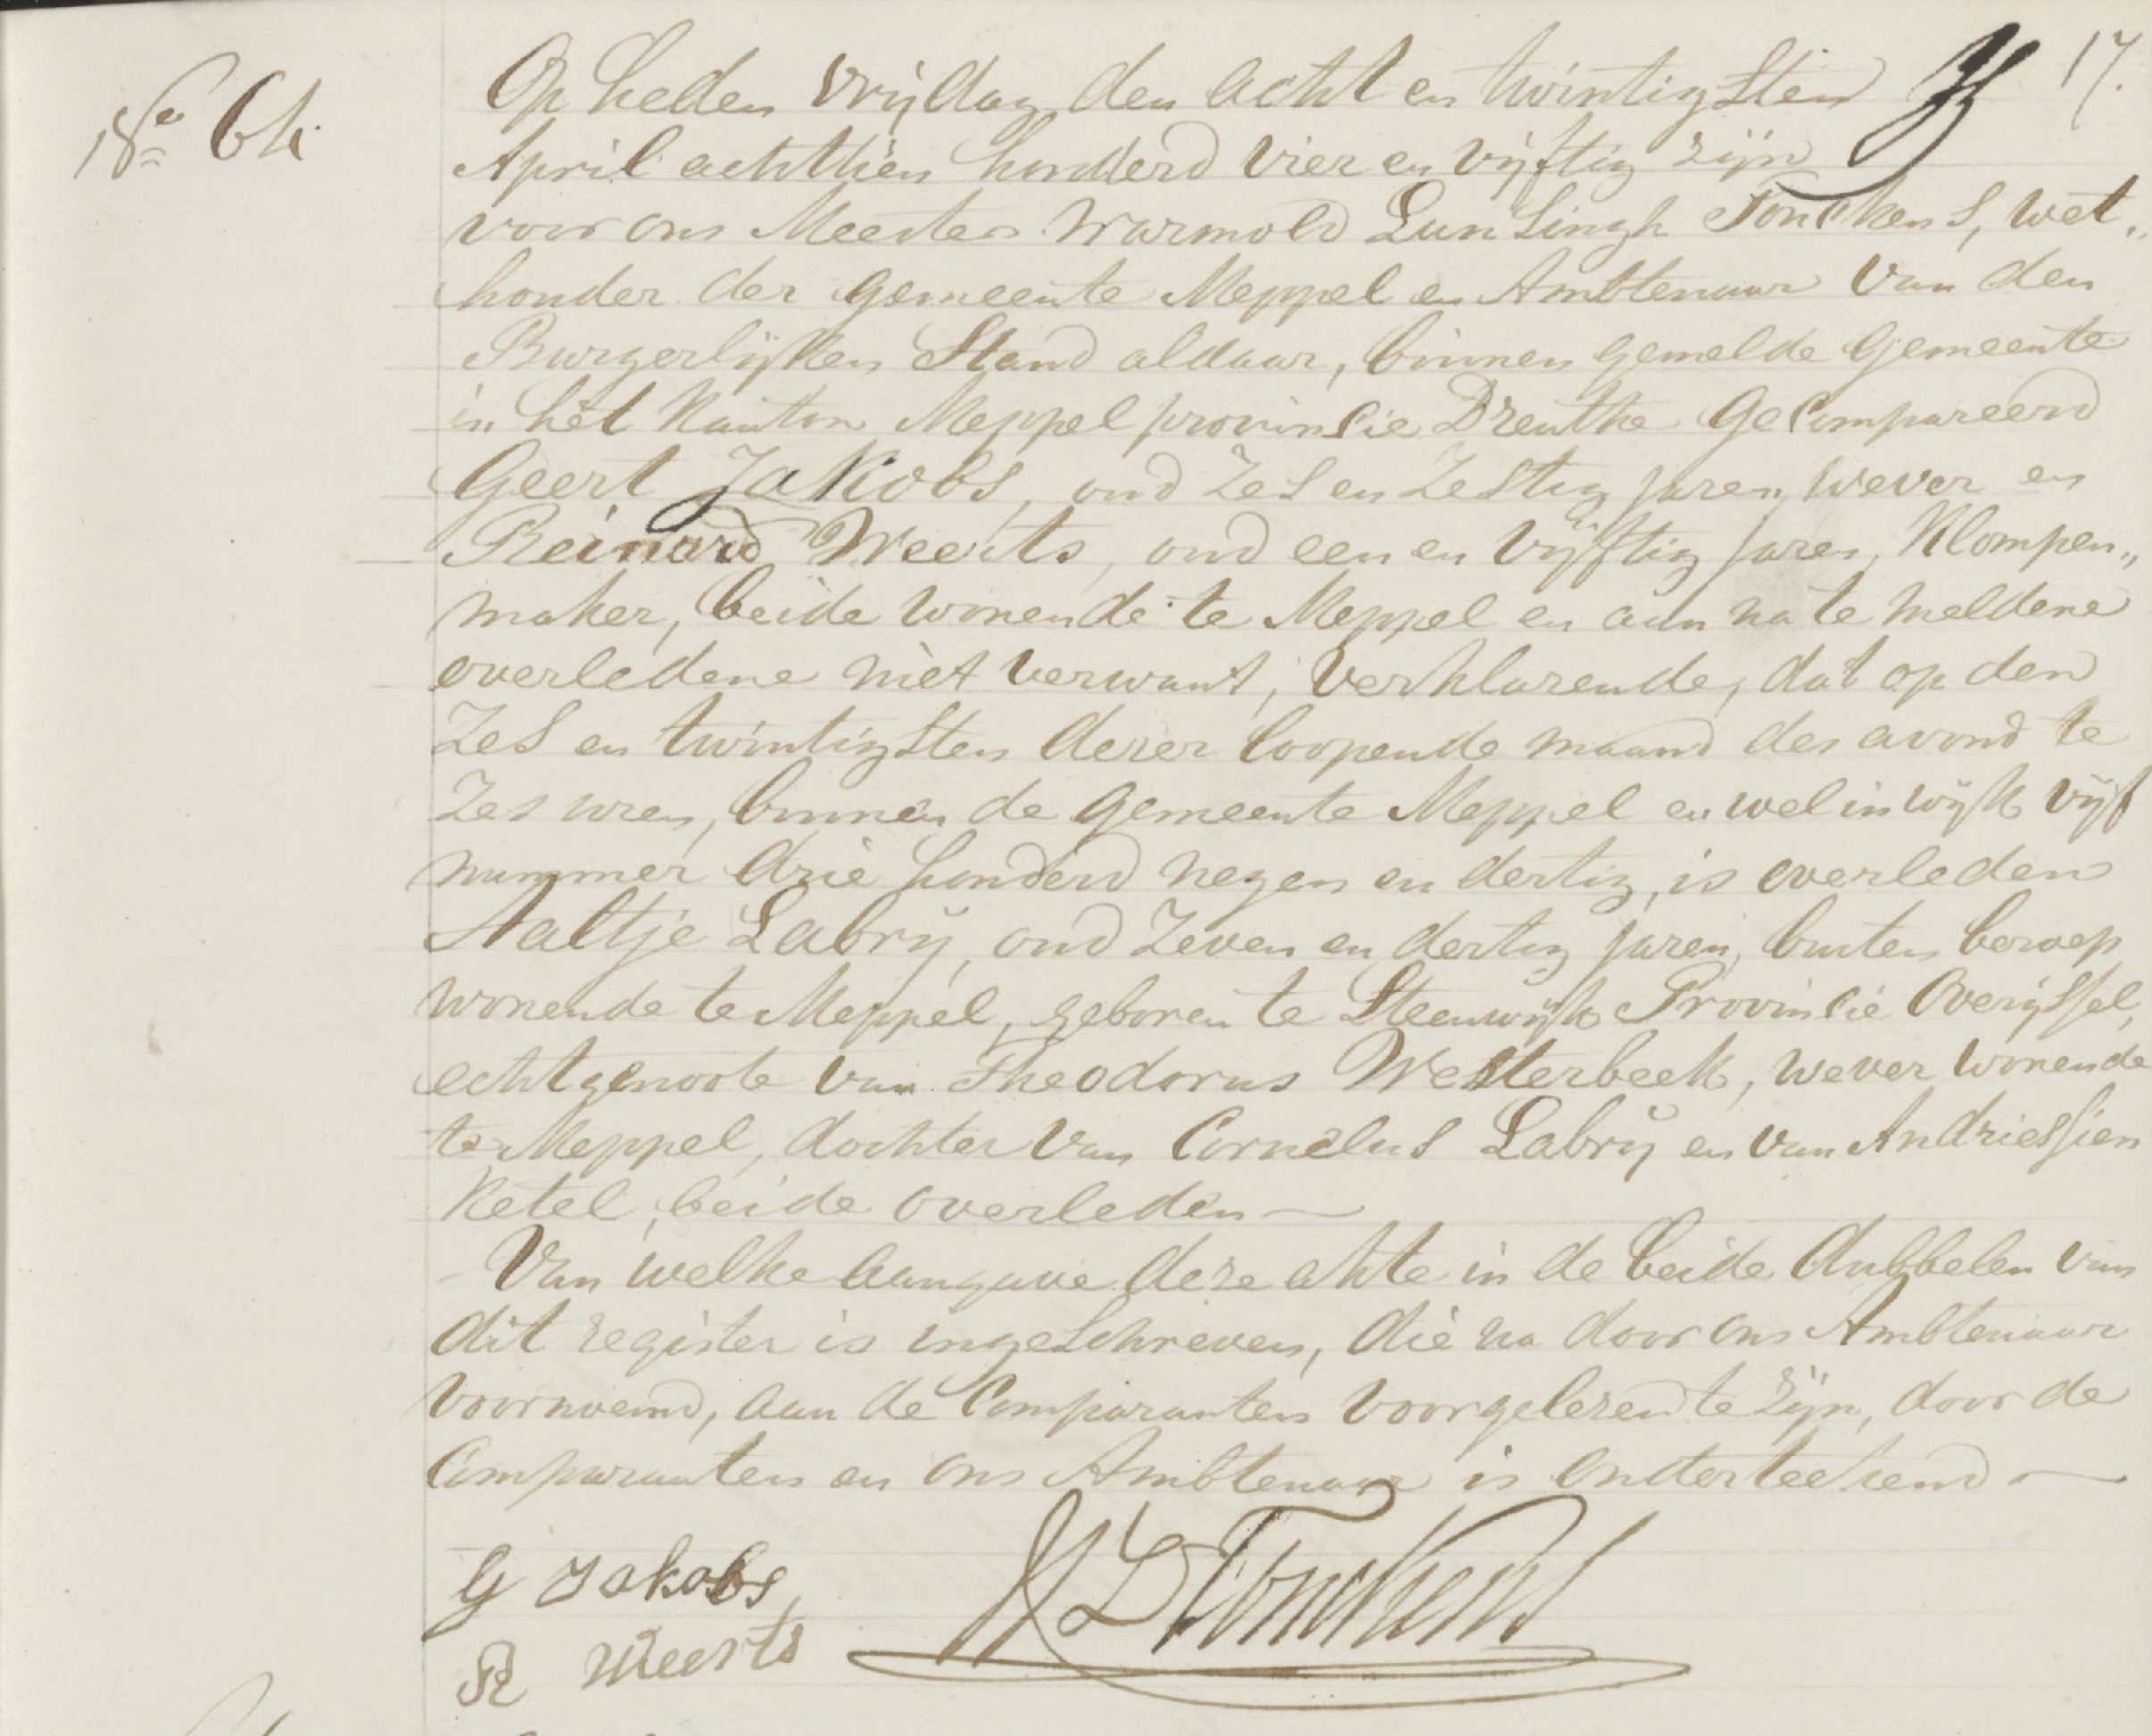 17.
No 64.
Op heden vrijdag den acht en twintigsten
April achttien honderd vier en vijftig zijn
voor ons Meester Warmold Lunsingh Tonckens, wet„
houder der gemeente Meppel en Ambtenaar van den
Burgerlijken Stand aldaar, binnen gemelde Gemeente
in het Kanton Meppel provincie Drenthe Gecompareerd
Geert Jakobs, oud Zes en Zestig jaren, wever en
Reinard Weerts, oud een en vijftig jaren, Klompen„
maker, beide wonende te Meppel en aan na te meldene
overledene niet verwant, verklarende, dat op den
Zes en twintigsten dezer loopende maand des avond te
Zes uren, binnen de gemeente Meppel en wel in wijk vijf
nummer drie honderd negen en dertig, is overleden
Aaltje Labrij, oud Zeven en dertig jaren, buiten beroep
wonende te Meppel, geboren te Steenwijk Provincie Overijssel,
echtgenoote van Theodorus Westerbeek, wever wonende
te Meppel, dochter van Cornelus Labrij en van Andriessien
Ketel, beide overleden
Van welke aangave deze akte in de beide dubbelen van
dit register is ingeschreven, die na door ons Ambtenaar
voornoemd, aan de Comparanten voorgelezen te zijn, door de
Comparanten en ons Ambtenaar is onderteekend
G Jakobs,
WLTonckens
R Weerts